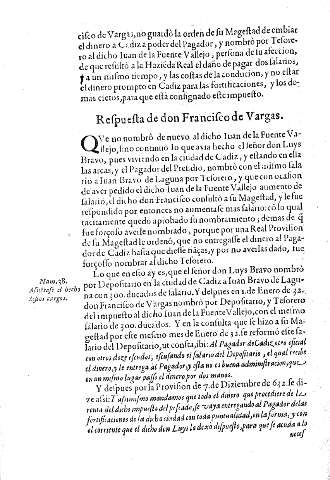 cisco de Vargas, no guardò la orden de su Magestad de embiar
el dinero a Cadiz a poder del Pagador, y nombrò por Tesore-
ro al dicho Juan de la Fuente Vallejo, persona de su afeccion,
de que resultò a la Hazieda Real el daño de pagar dos salarios,
a un mismo tiempo, y las costas de la conducion, y no estar
el dinero prompto en Cadiz para las fortificaciones, y los de-
mas cietos, para que està consignado este impuesto.
Respuesta de don Francisco de Vargas.
QVe no nombrò de nuevo al dicho Juan de la Fuente Va-
llejo, sino continuò lo que avia hecho el señor don Luys
Bravo, pues viviendo en la ciudad de Cadiz, y estando en ella
las arcas, y el Pagador del Presidio, nombrò con el mismo sala
rio a Juan Bravo de Laguna por Tesorero, y que con ocasion
de aver pedido el dicho Juan de la Fuente Vallejo aumento de
salario, el dicho don Francisco consultò a su Magestad, y le fue
respondido por entonces no aumentase mas salario: cō lo qual
tacitamente quedò aprobado su nombramiento; demas de q̄
fue forçoso averle nombrado, porque por una Real Provision
de su Magestad le ordenò, que no entregasse el dinero al Paga-
dor de Cadiz hasta que diesse fiāças, y por no averlas dado, fue
forçoso nombrar al dicho Tesorero.
Num. 38.
Assistese al hecho
destos cargos.
Lo que en esto ay es, que el señor don Luys Bravo nombrò
por Depositario en la ciudad de Cadiz a Juan Bravo de Lagu-
na con 300. ducados de salario. Y despues en 1. de Enero de 32.
don Francisco de Vargas nombrò por Depositario, y Tesorero
del impuesto al dicho Juan de la Fuente Vallejo, con el mismo
salario de 300. ducados. Y en la consulta que se hizo a su Ma-
gestad por este mismo mes de Enero de 32. se reformò este sa-
lario del Depositario, ut consta, ibi: al Pagador de Cadiz, con oficial
con otros doze escudos, escusando el salario del Depositario, el qual recibe
el dinero, y le entrega al Pagador, y esta no es buena administracion, que
en un mismo lugar passe el dinero por dos manos.
Y despues por la Provision de 7. de Diziembre de 642. se di-
ze assi: Y assimismo mandamos que todo el dinero que procediere de la
renta del dicho impuesto del pescado, se vaya entregando al Pagador de las
fortificaciones de la dicha ciudad con toda puntualidad, en la forma, y con
el corriente que el dicho don Luys lo dexò dispuesto, para que se acuda a lo
neces-